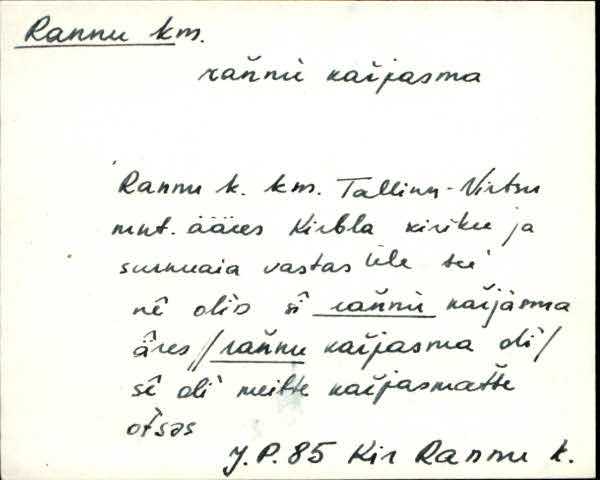 Rannu km.
rañnù kaĭjasma
Rannu k. km. Tallinn-Virtsu
mnt. ääres Kirbla kiriku ja
surnuaia vastas üle tee
nê olìD sî rañnù kaĭjäsma
äres // rañnu kaĭjasma oli /
sê oli meitte kaĭjasmatte
otsəs
J.P.85 Kir Rannu k.